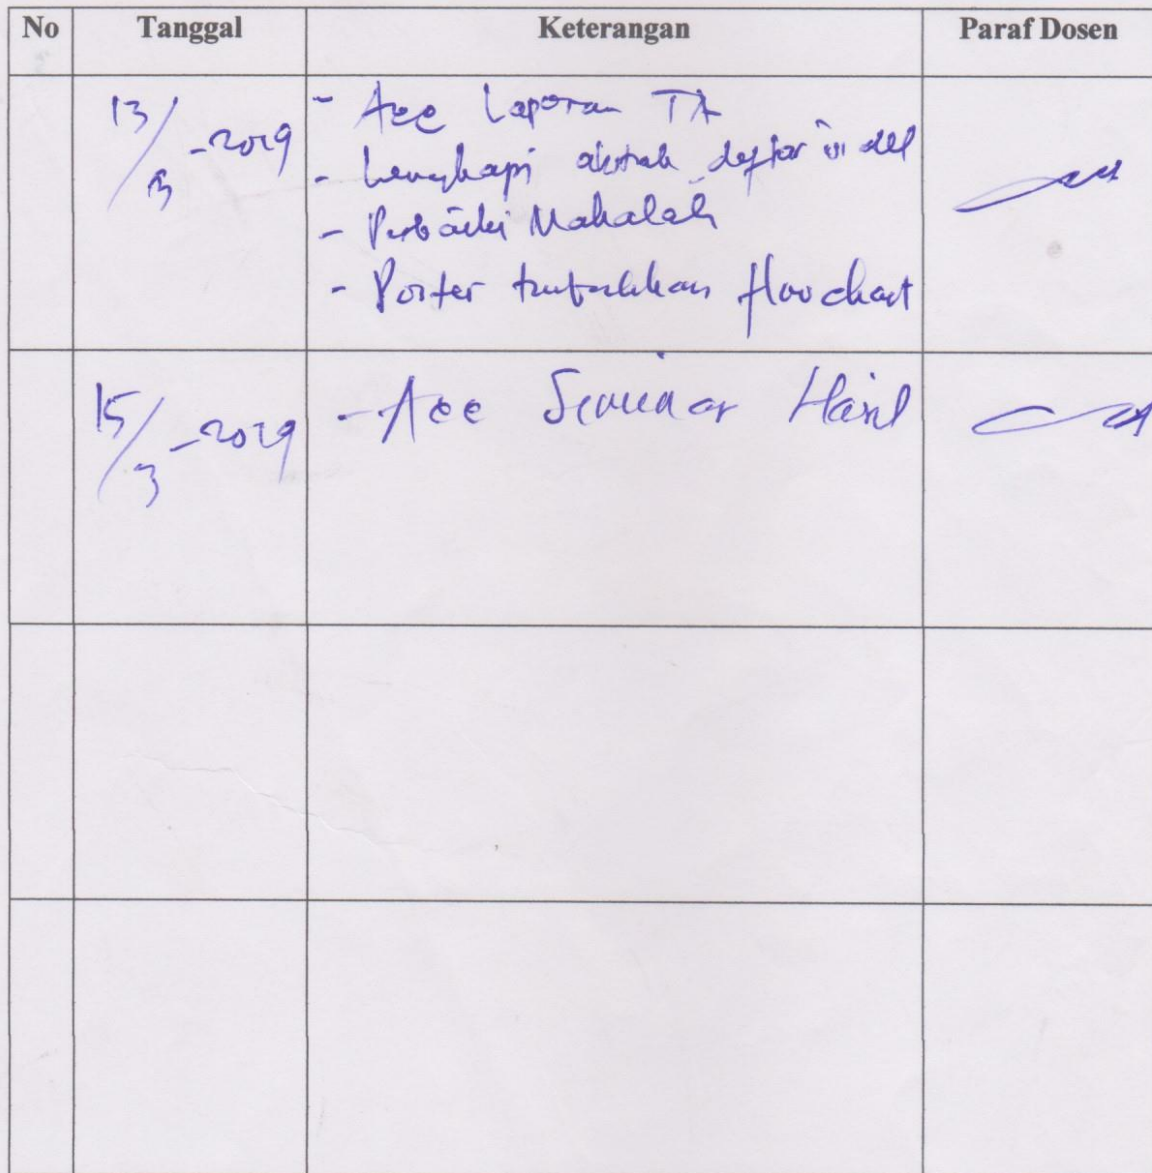 No Tanggal Keterangan Paraf Dosen
13/3-2019
- Acc Laporan TA
- Lengkapi abstrak daftar isi dll
- Perbaiki Makalah
- Poster tambahkan flowchart
15/3-2019 - Acc Seminar Hasil